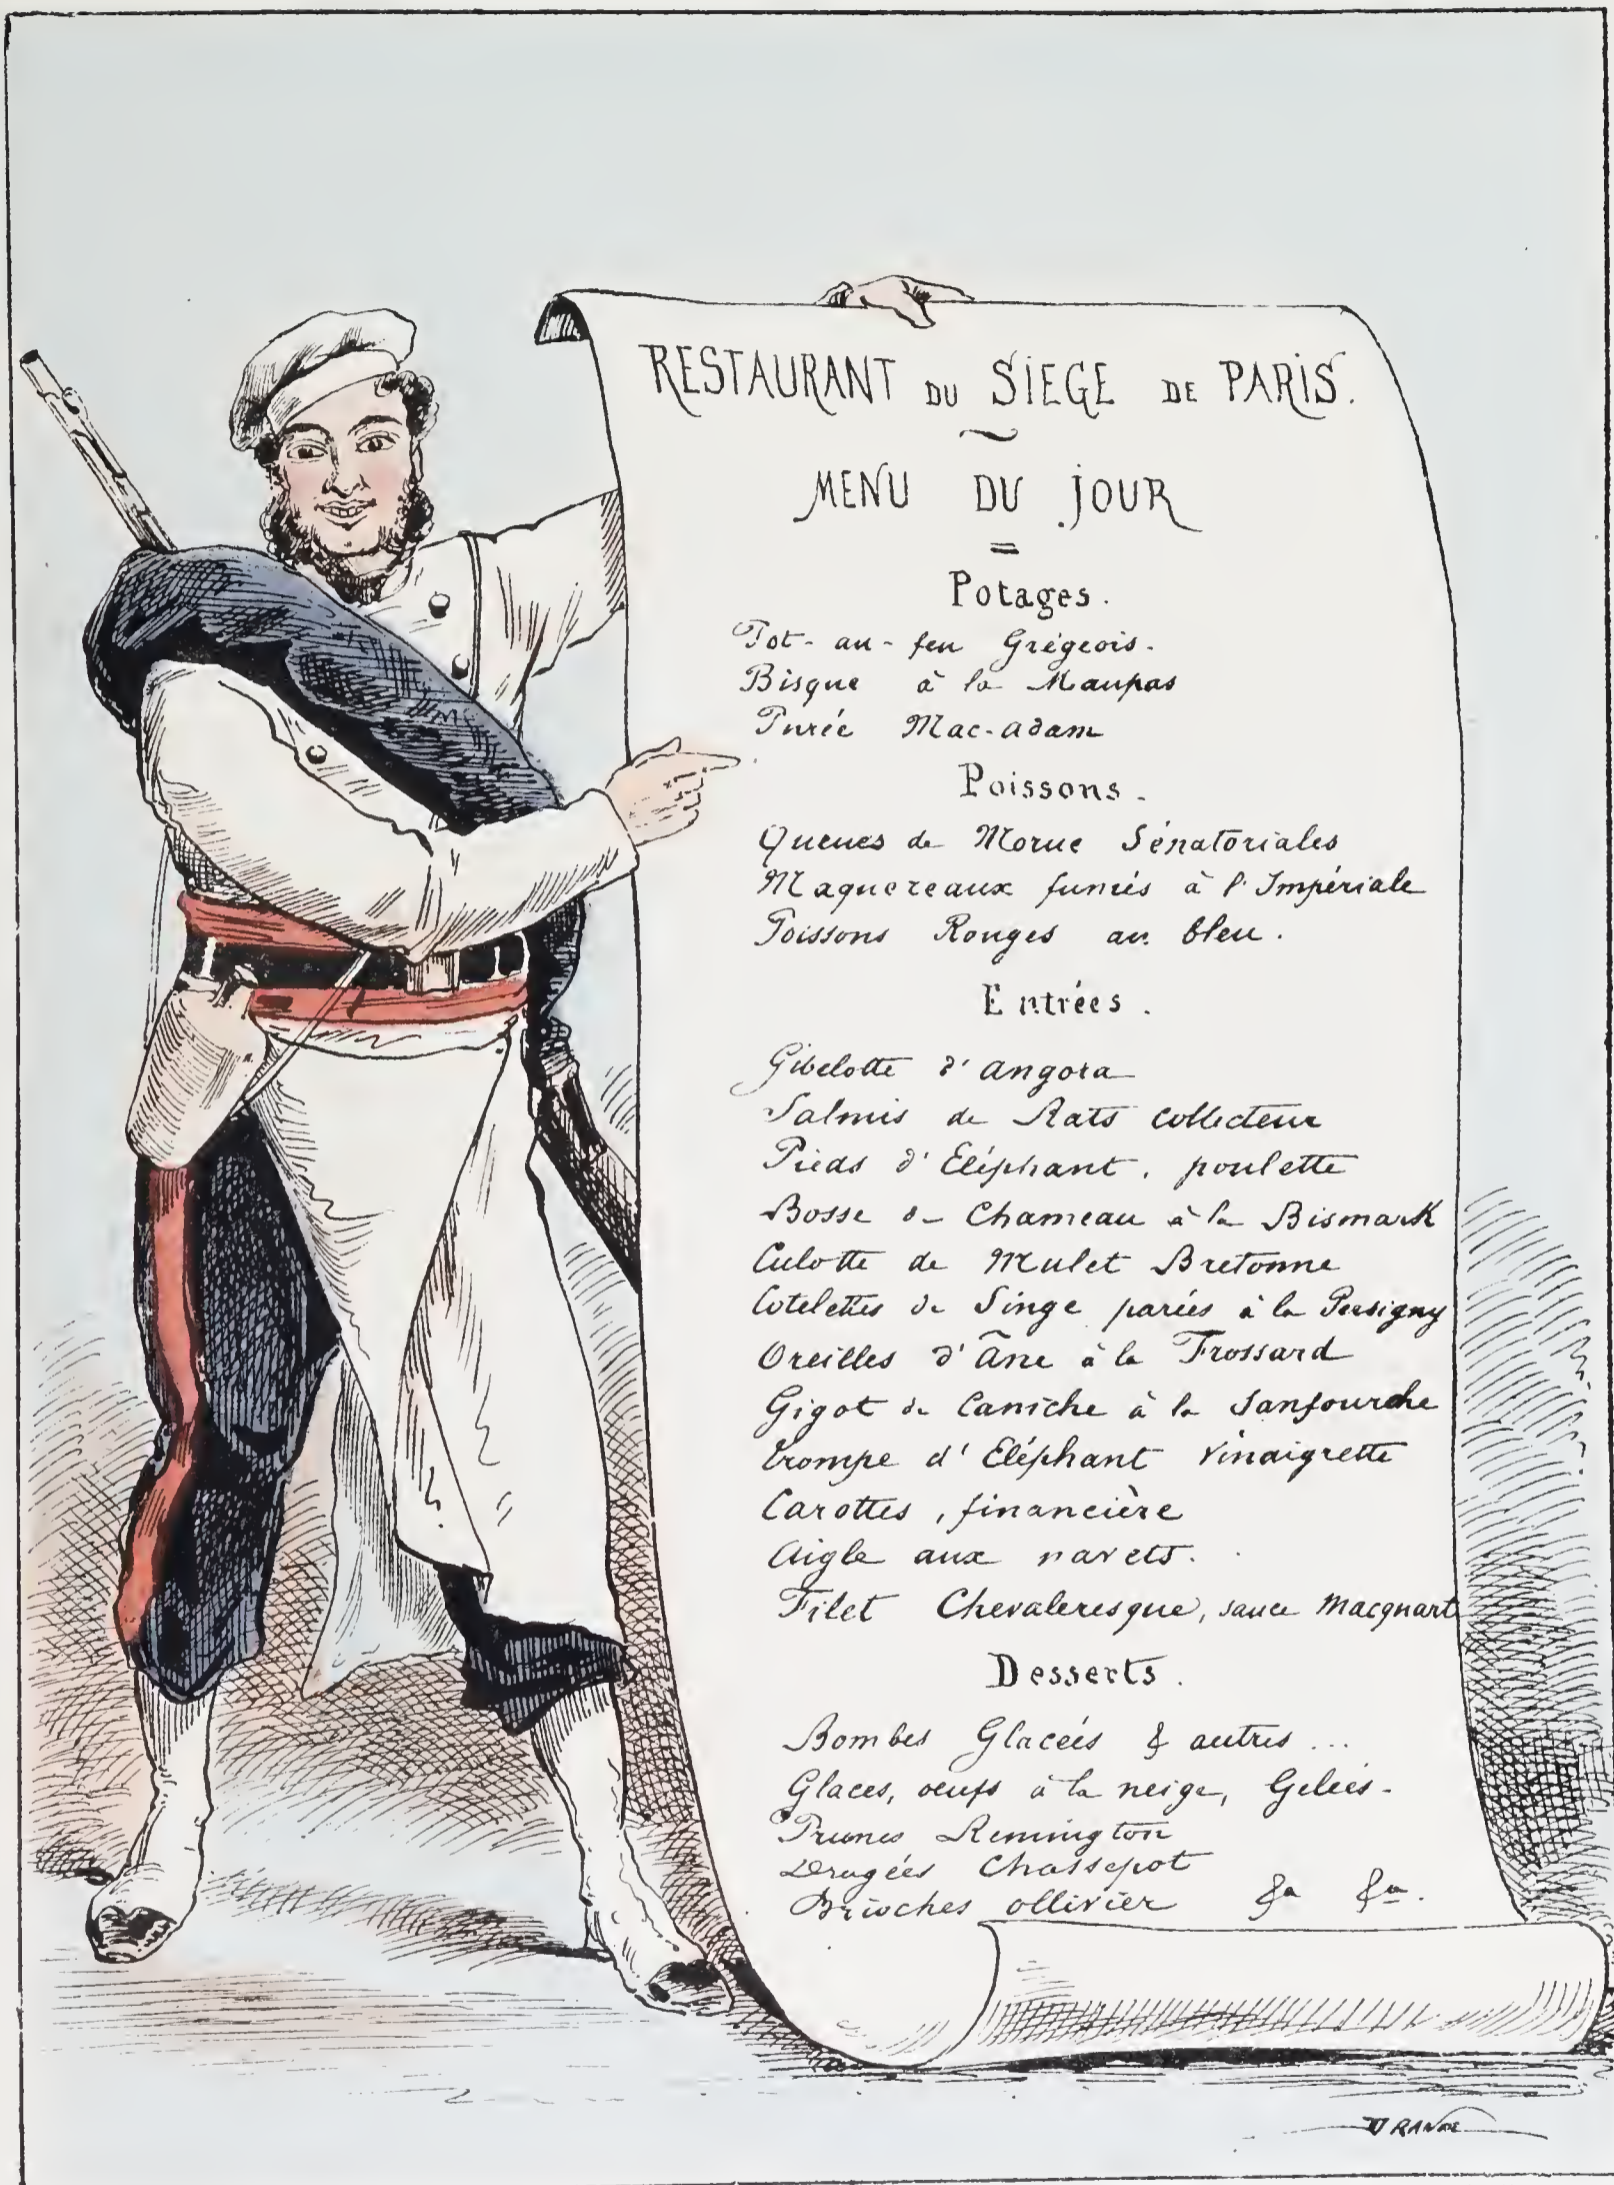 RESTAURANT DU SIEGE DE PARIS.
MENU DU JOUR
Potages.
Pot-au-feu Grégeois.
Bisque à la Maupas
Purée Mac-adam
Poissons.
Queues de Morue Sénatoriales
Maquereaux fumés à l'Impériale
Poissons Rouges au bleu.
Entrées.
Gibelotte d'angora
Salmis de Rats collecteur
Pieds d'Eléphant, poulette
Bosse de Chameau à la Bismark
Culotte de Mulet Bretonne
Cotelettes de Singe parées à la Persigny
Oreilles d'Âne à la Frossard
Gigot de Caniche à la Sanfourche
trompe d'Eléphant Vinaigrette
Carottes, financière
Aigle aux navets.
Filet Chevaleresque, sauce Macquart
Desserts.
Bombes Glacées & autres...
Glaces, oeufs à la neige, Gelées.
Prunes Remington
Dragées Chassepot
Brioches ollivier &a &a.
DRANER